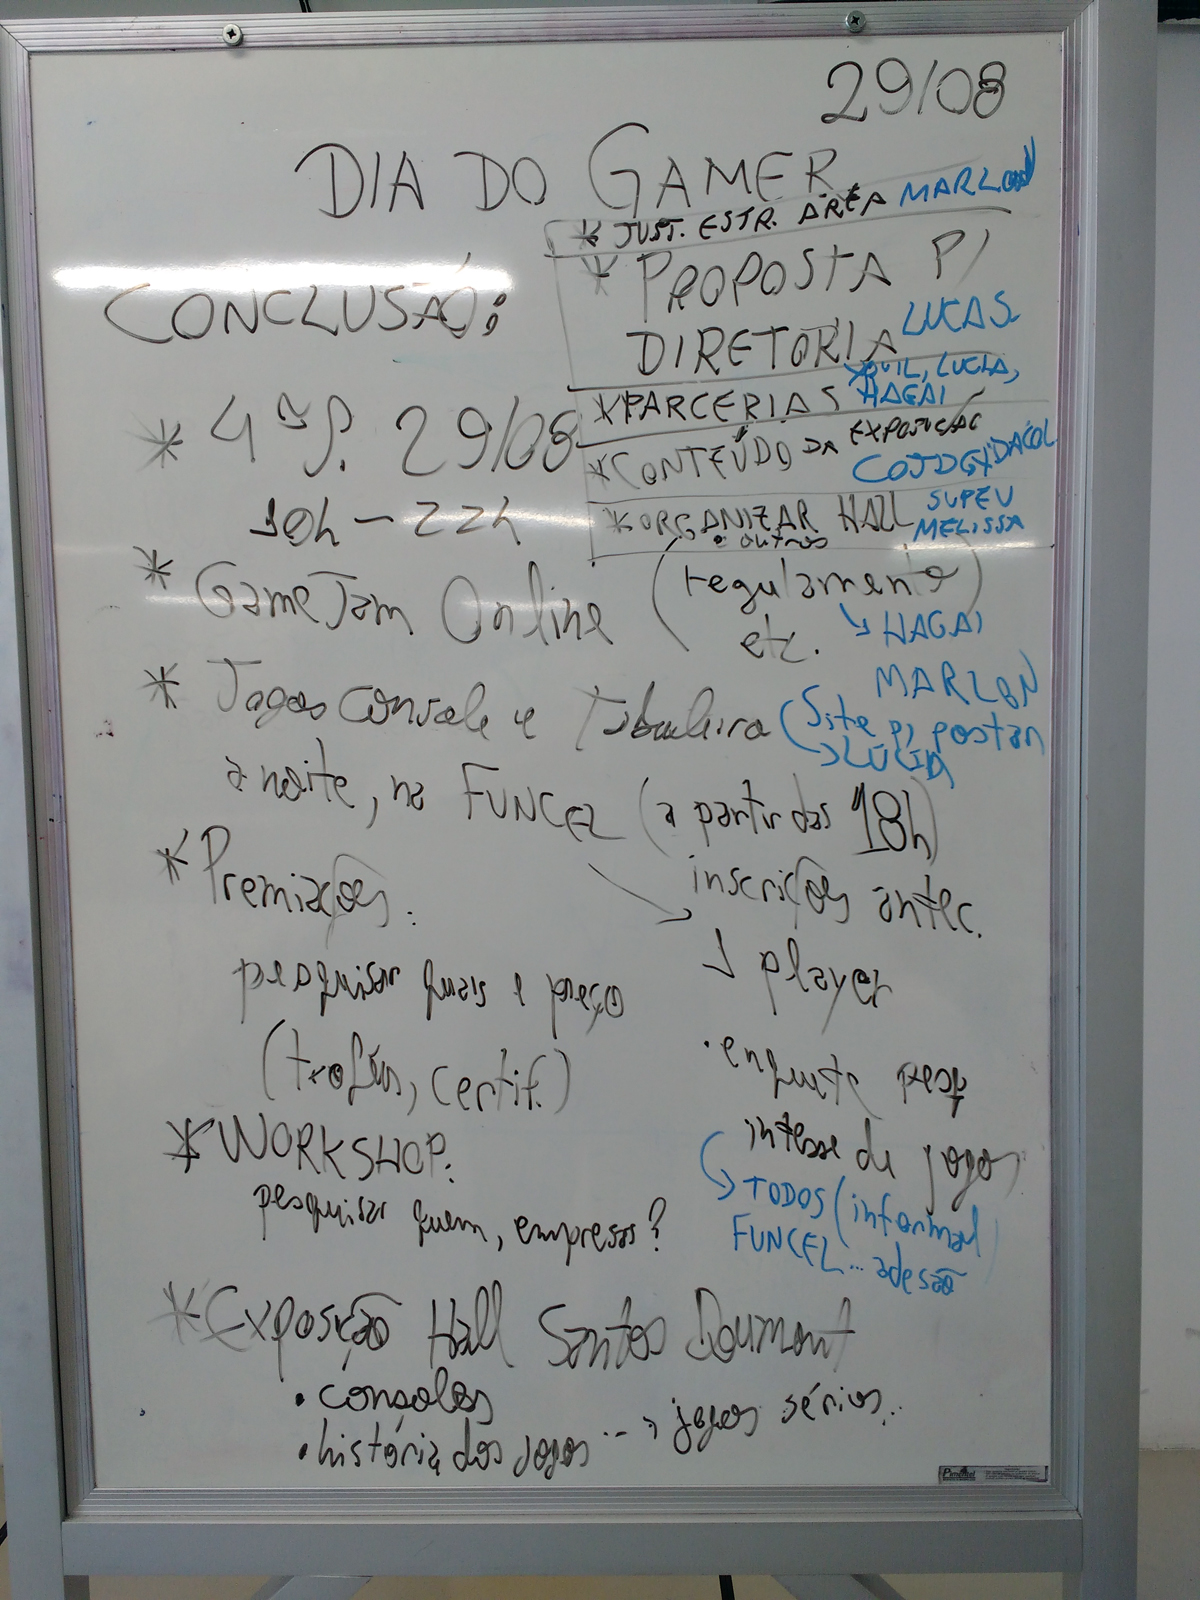 29/08
DIA DO GAMER
* JUST. ESTR. ÁREA MARLON
* PROPOSTA P/
DIRETORIA LUCAS
* PARCERIAS LUCIA,
HAGAI
* CONTEÚDO DA EXPOSIÇÃO
* ORGANIZAR HALL SUPEV
• OUTROS MELISSA
CONCLUSÃO:
* 4ª f. 29/08
10h - 22h
* GameJam Online (regulamento
etc.)
↘ HAGAI
MARLON
* Jogos console e Tabuleiro (Site p/ postar
↘ LÚCIA
à noite, na FUNCEL (a partir das 18h)
inscrições antec.
↓ player
• enquete pesq
intesse de jogos
↳ TODOS (informal)
FUNCEL... adesão
* Premiações.
pesquisar quais e preço
(troféus, certif.)
* WORKSHOP.
pesquisar quem, empresas?
* Exposição Hall Santos Doumont
• consoles
• história dos jogos ... → jogos sérios...